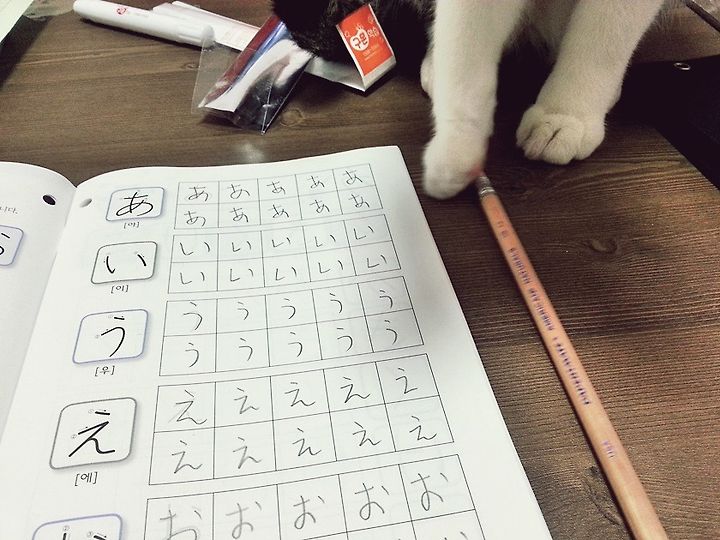 구몬학습
니다.
あ あ あ あ あ あ
[아] あ あ あ あ あ
い い い い い い
[이] い い い い い
う う う う う う
[우] う う う う う
え え え え え え
[에] え え え え え
お お お お お